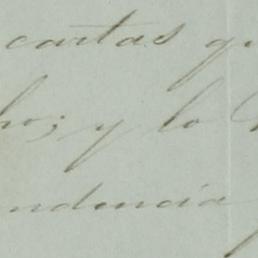 cartas qu
ho; y lo
ndencia